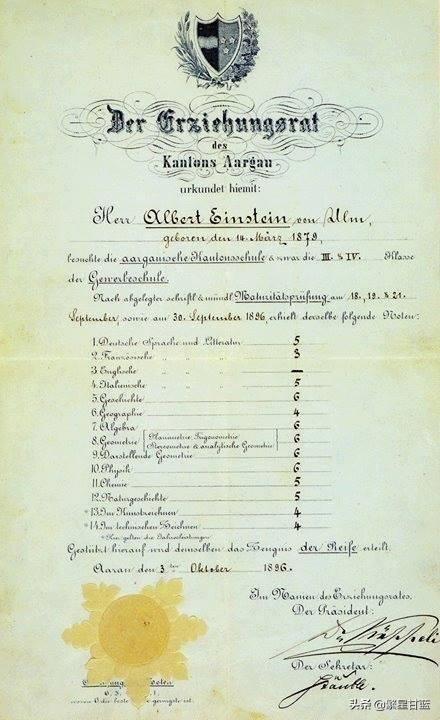 Der Erziehungsrat
des
Kantons Aargau
urkundet hiemit:
Herr Albert Einstein von Ulm,
geboren den 14. März 1879,
besuchte die aargauische Kantonsschule & zwar die III. & IV. Klasse
der Gewerbeschule.
Nach abgelegter schriftl. & mündl. Maturitätsprüfung am 18., 19. & 21.
September, sowie am 30. September 1896, erhielt derselbe folgende Noten:
1. Deutsche Sprache und Litteratur 5
2. Französische " " " 3
3. Englische " " " —
4. Italienische " " " 5
5. Geschichte 6
6. Geographie 4
7. Algebra 6
8. Geometrie (Planimetrie, Trigonometrie 6
Stereometrie & analytische Geometrie)
9. Darstellende Geometrie 6
10. Physik 6
11. Chemie 5
12. Naturgeschichte 5
*13. Im Kunstzeichnen 4
*14. Im technischen Zeichnen 4
*Hier gelten die Jahresleistungen
Gestützt hierauf wird demselben das Zeugnis der Reife erteilt.
Aarau den 3ten Oktober 1896.
Im Namen des Erziehungsrates,
Der Präsident:
Der Sekretär:
头条 @繁星甘蓝